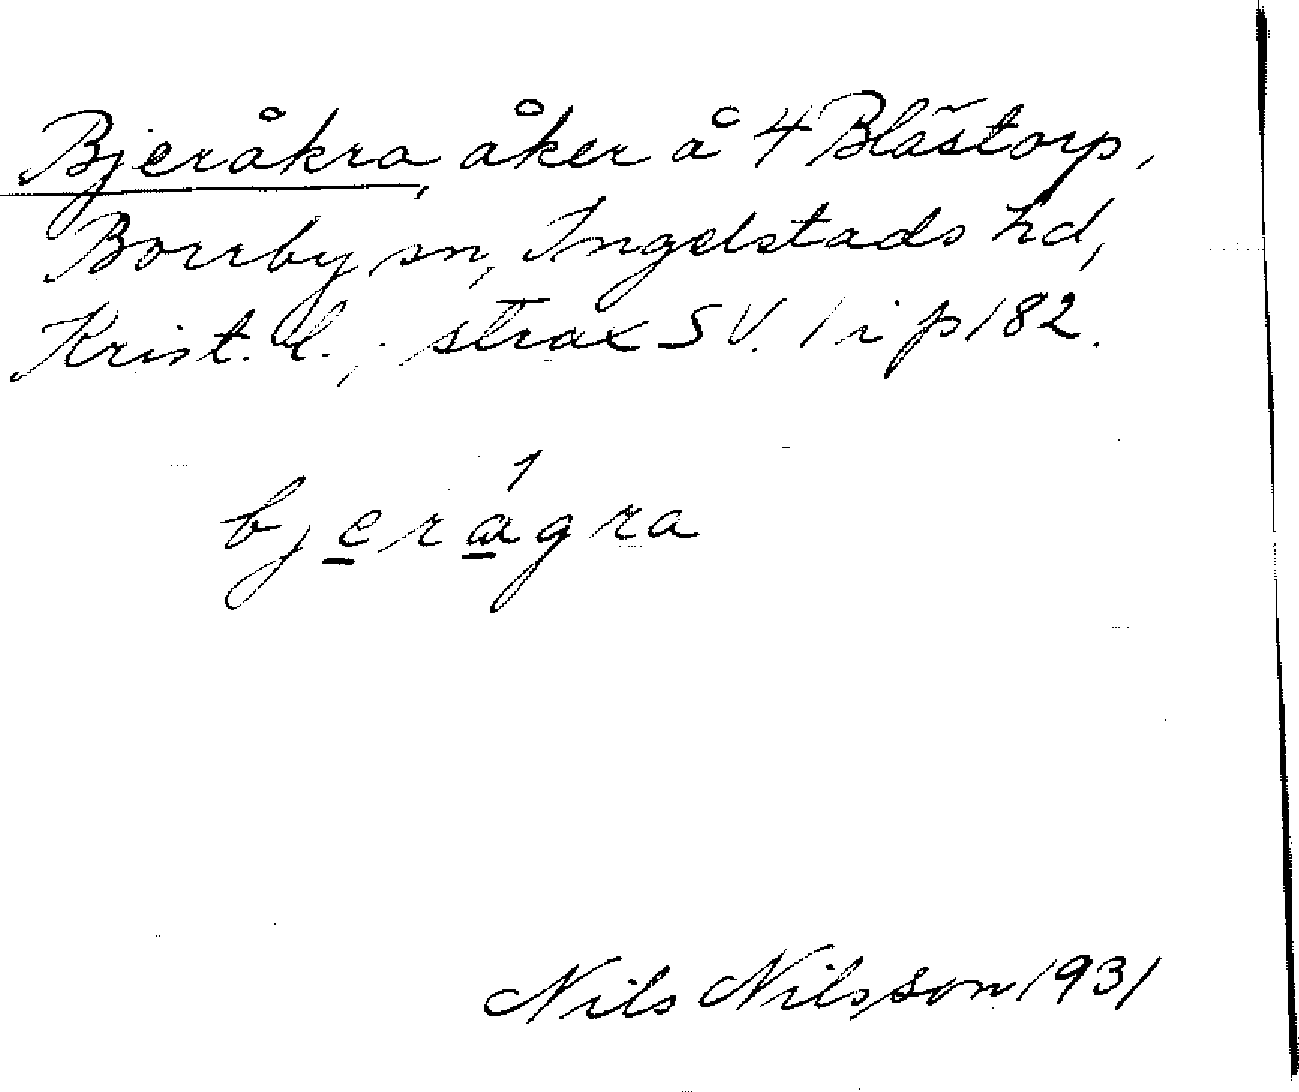 Bjeråkra, åker å 4 Blästorp,
Borrby sn, Ingelstads hd,
Krist. l., strax SV. 1 i p 182.
bjerágra
Nils Nilsson 1931